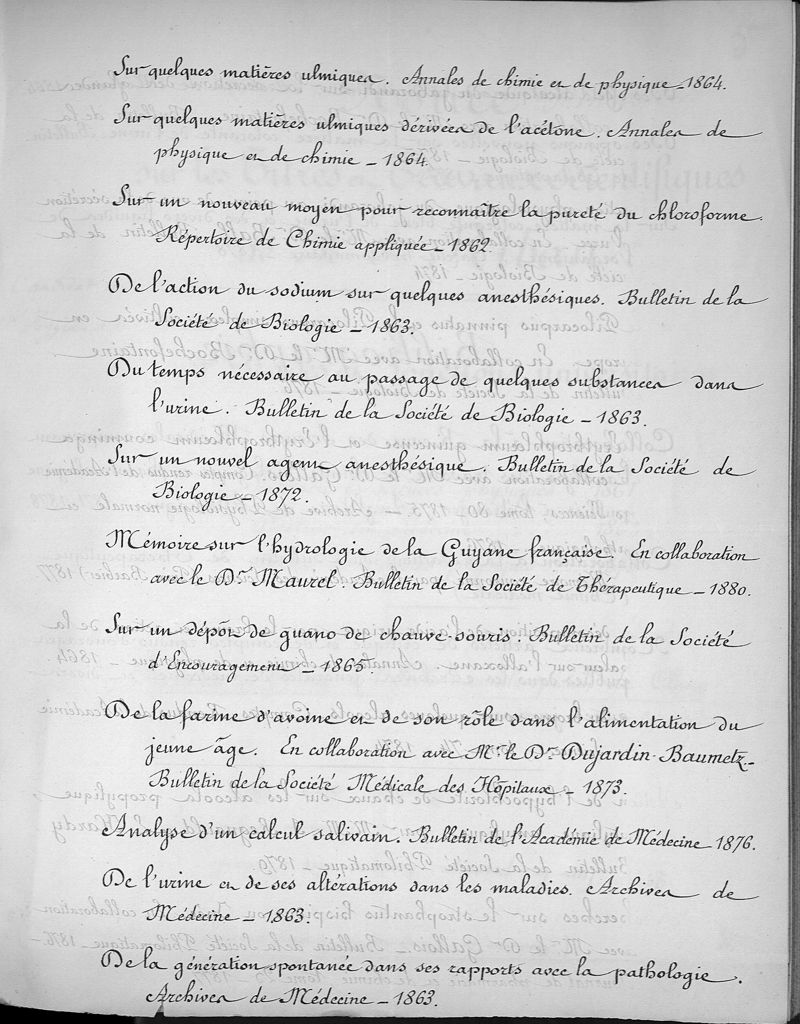 Sur quelques matières ulmiques. Annales de chimie et de physique – 1864.
Sur quelques matières ulmiques dérivées de l'acétone. Annales de
physique et de chimie – 1864.
Sur un nouveau moyen pour reconnaître la pureté du chloroforme.
Répertoire de Chimie appliquée – 1862
De l'action du sodium sur quelques anesthésiques. Bulletin de la
Société de Biologie – 1863.
Du temps nécessaire au passage de quelques substances dans
l'urine. Bulletin de la Société de Biologie – 1863.
Sur un nouvel agent anesthésique. Bulletin de la Société de
Biologie – 1872.
Mémoire sur l'hydrologie de la Guyane française. En collaboration
avec le Dr. Maurel. Bulletin de la Société de Thérapeutique – 1880.
Sur un dépôt de guano de chauve-souris. Bulletin de la Société
d'Encouragement – 1865.
De la farine d'avoine et de son rôle dans l'alimentation du
jeune âge. En collaboration avec Mr. le Dr. Dujardin-Baumetz. –
Bulletin de la Société Médicale des Hôpitaux – 1873.
Analyse d'un calcul salivain. Bulletin de l'Académie de Médecine 1876.
De l'urine et de ses altérations dans les maladies. Archives de
Médecine – 1863.
De la génération spontanée dans ses rapports avec la pathologie.
Archives de Médecine – 1863.